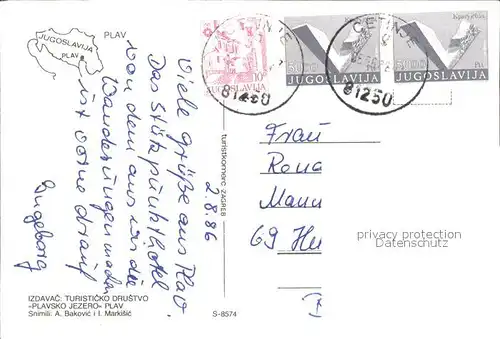 JUGOSLAVIJA
PLAV
PLAV
2.8.86
Viele Grüße aus Plav.
Das Stützpunkthotel
von dem aus wir die
Wanderungen machen
ist vorne drauf
Ingeborg
IZDAVAČ: TURISTIČKO DRUŠTVO
»PLAVSKO JEZERO« PLAV
Snimili: A. Baković i I. Markišić
S-8574
turistkomerc ZAGREB
10
JUGOSLAVIJA
CETINJE
81250
5000
JUGOSLAVIJA
CETINJE
81250
JUGOSLAVIJA
Frau
Rena
Mann
69 He
privacy protection
Datenschutz